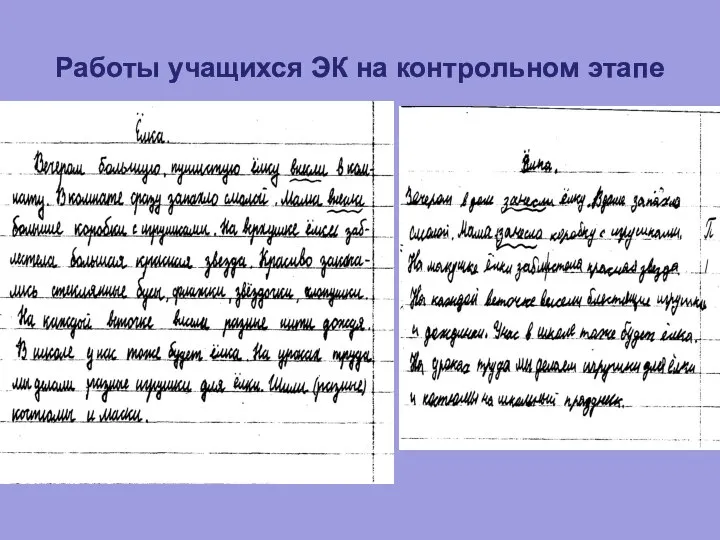 Работы учащихся ЭК на контрольном этапе
Ёлка.
Вечером большую, пушистую ёлку внесли в ком-
нату. В комнате сразу запахло смолой. Мама внесла
большие коробки с игрушками. На верхушке ёлки заб-
лестела большая красная звезда. Красиво закача-
лись стеклянные бусы, флажки, звёздочки, хлопушки.
На каждой веточке висели разные нити дождя.
В школе у нас тоже будет ёлка. На уроках труда
мы делали разные игрушки для ёлки. Шили (разные)
костюмы и маски.
Ёлка.
Вечером в дом занесли ёлку. В доме запахло
смолой. Мама занесла коробку с игрушками.
На макушке ёлки заблистела красная звезда.
На каждой веточке висели блестящие игрушки
и дождики. У нас в школе тоже будет ёлка.
На уроках труда мы делаем игрушки для ёлки
и костюмы на школьный праздник.
П